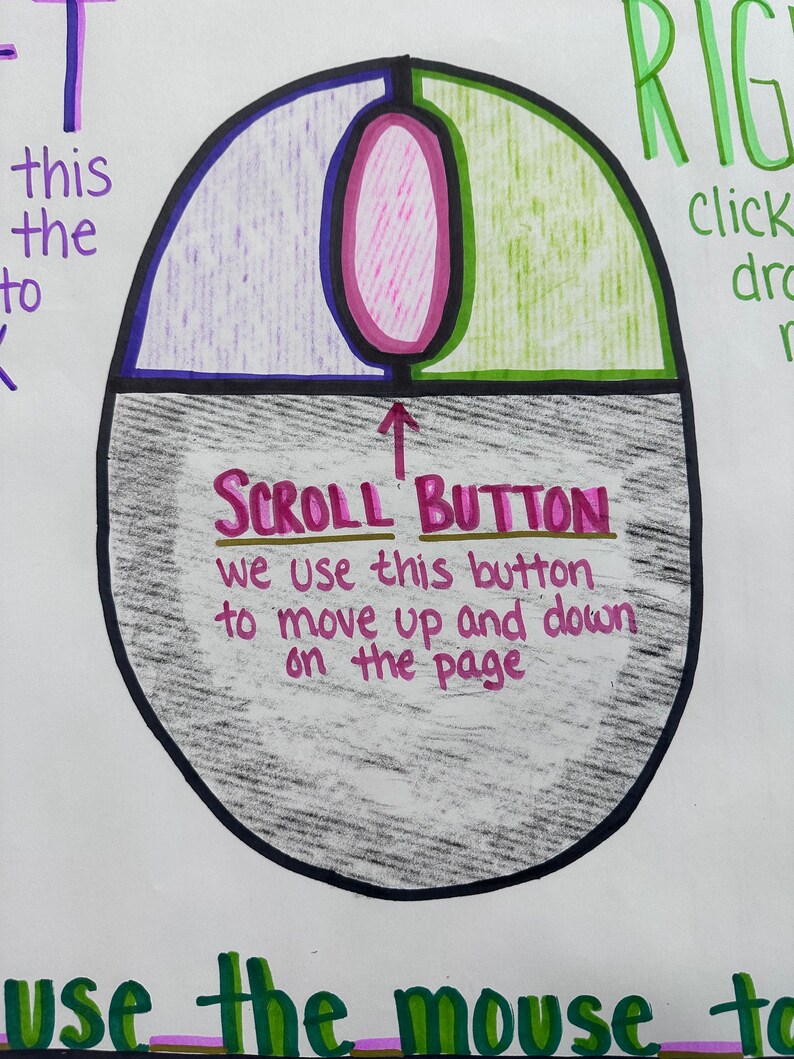 this
the
to
RIG
click
SCROLL BUTTON
we use this button
to move up and down
on the page
use the mouse to